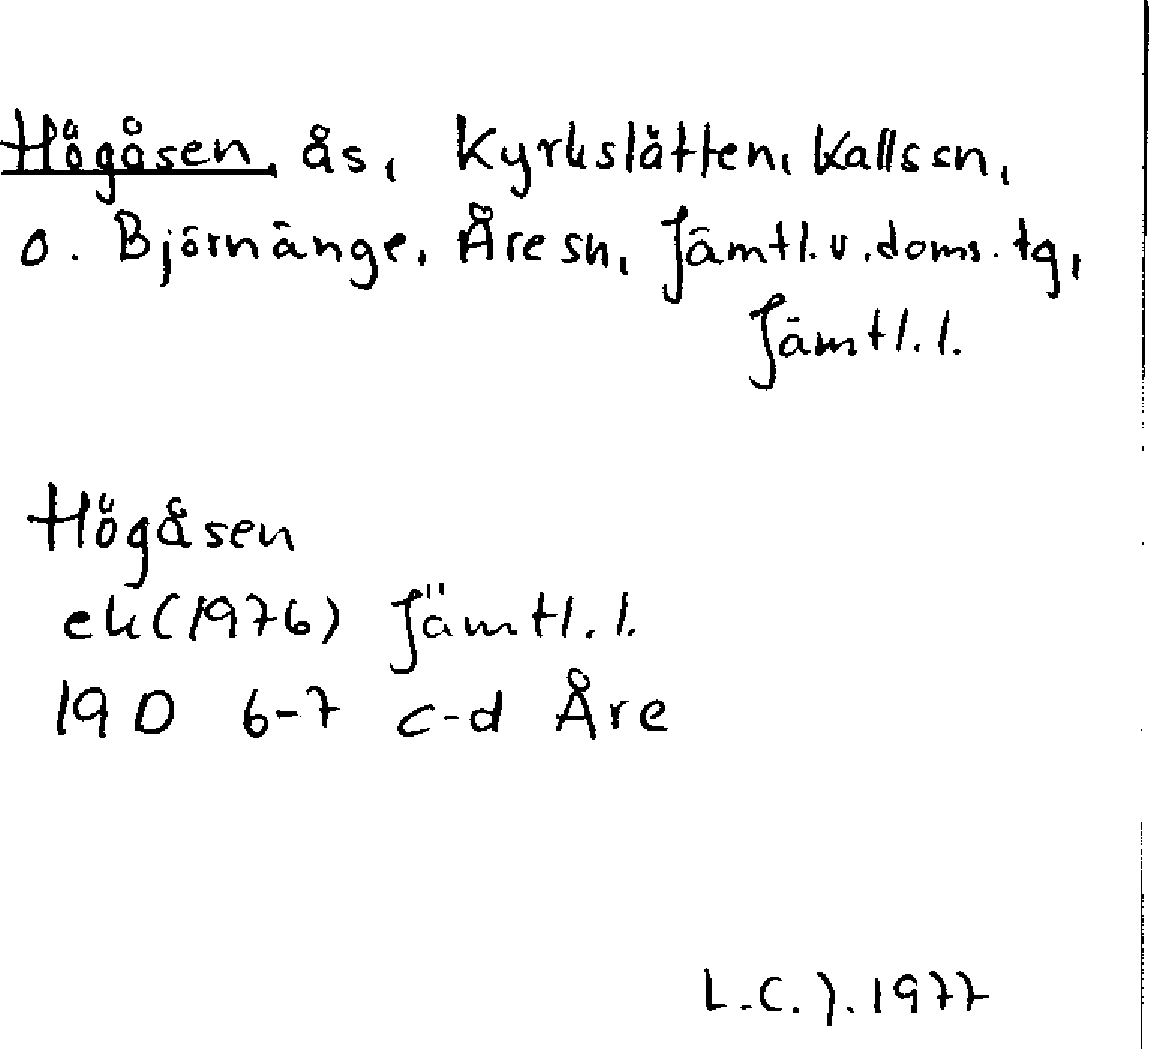 Högåsen, ås, Kyrkslätten, Kalls sn,
o. Björnänge, Åre sn, Jämtl. v. doms. tg,
Jämtl. l.
Högåsen
ek (1976) Jämtl. l.
19 D 6-7 c-d Åre
L.C.J. 1977